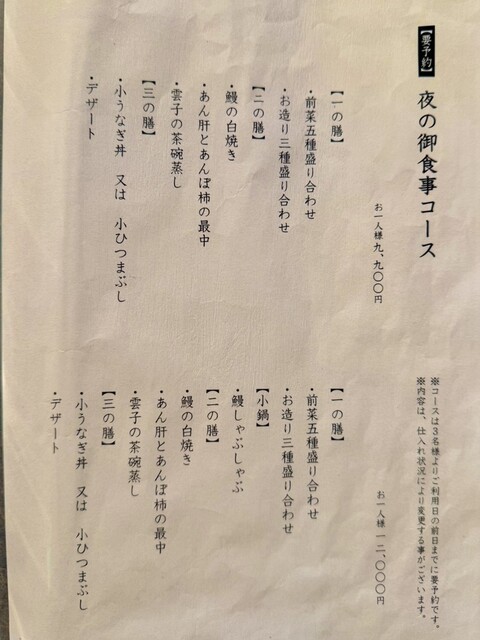 【要予約】 夜の御食事コース
※コースは3名様よりご利用日の前日までに要予約です。
※内容は、仕入れ状況により変更する事がございます。
お一人様 九、九〇〇円
【一の膳】
・前菜五種盛り合わせ
・お造り三種盛り合わせ
【二の膳】
・鰻の白焼き
・あん肝とあんぽ柿の最中
・雲子の茶碗蒸し
【三の膳】
・小うなぎ丼 又は 小ひつまぶし
・デザート
お一人様 一二、〇〇〇円
【一の膳】
・前菜五種盛り合わせ
・お造り三種盛り合わせ
【小鍋】
・鰻しゃぶしゃぶ
【二の膳】
・鰻の白焼き
・あん肝とあんぽ柿の最中
・雲子の茶碗蒸し
【三の膳】
・小うなぎ丼 又は 小ひつまぶし
・デザート